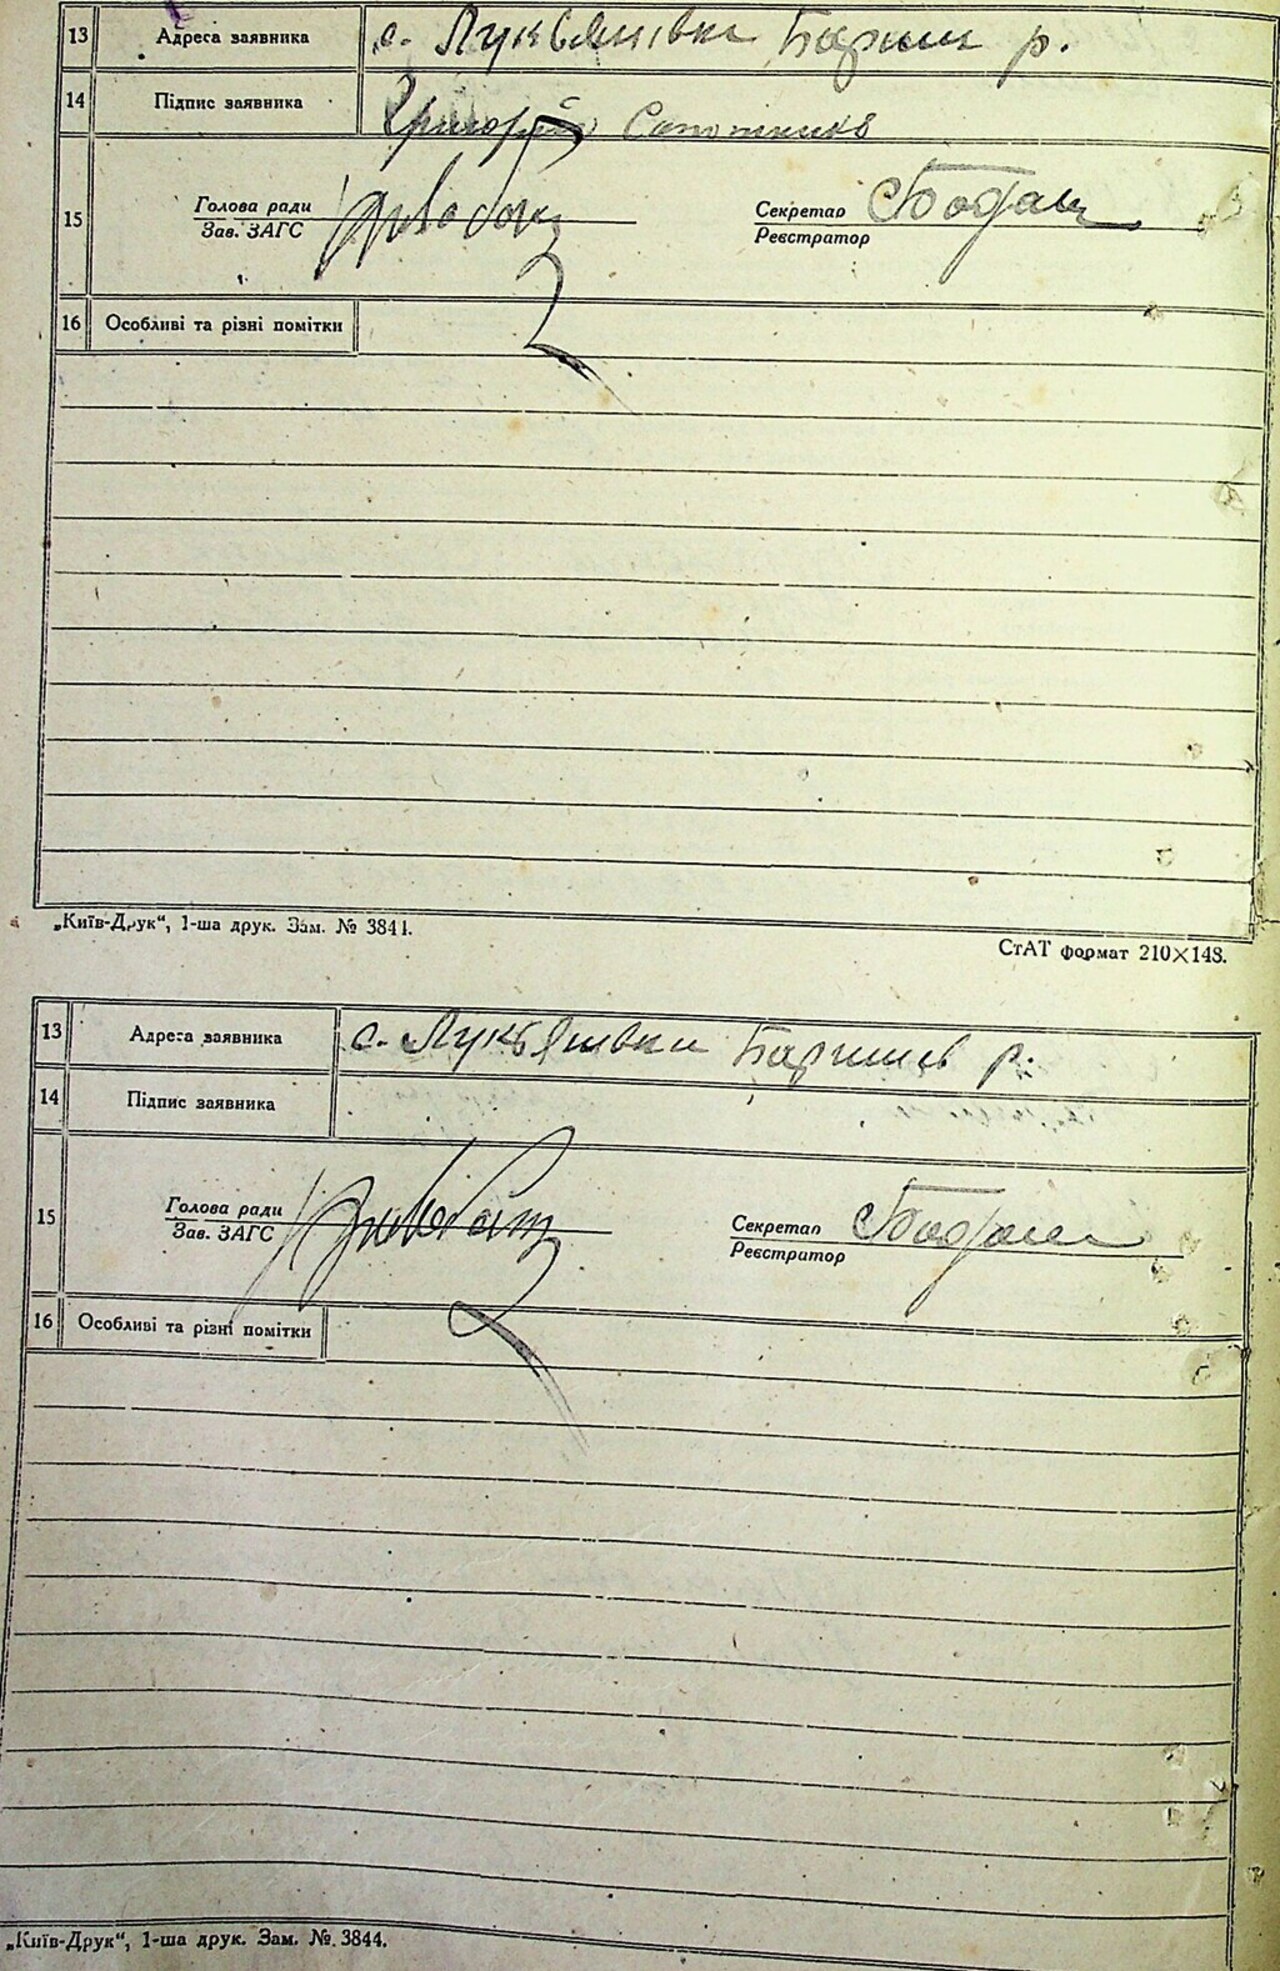 13 Адреса заявника с. Лукьянівка Бариш р.
14 Підпис заявника Григорій
15 Голова ради Секретар
Зав. ЗАГС Реєстратор
16 Особливі та різні помітки
„Київ-Друк“, 1-ша друк. Зам. № 3844.
СтАТ формат 210×148.
13 Адреса заявника с. Лукьянівки Баришів р.
14 Підпис заявника
15 Голова ради Секретар
Зав. ЗАГС Реєстратор
16 Особливі та різні помітки
„Київ-Друк“, 1-ша друк. Зам. №. 3844.